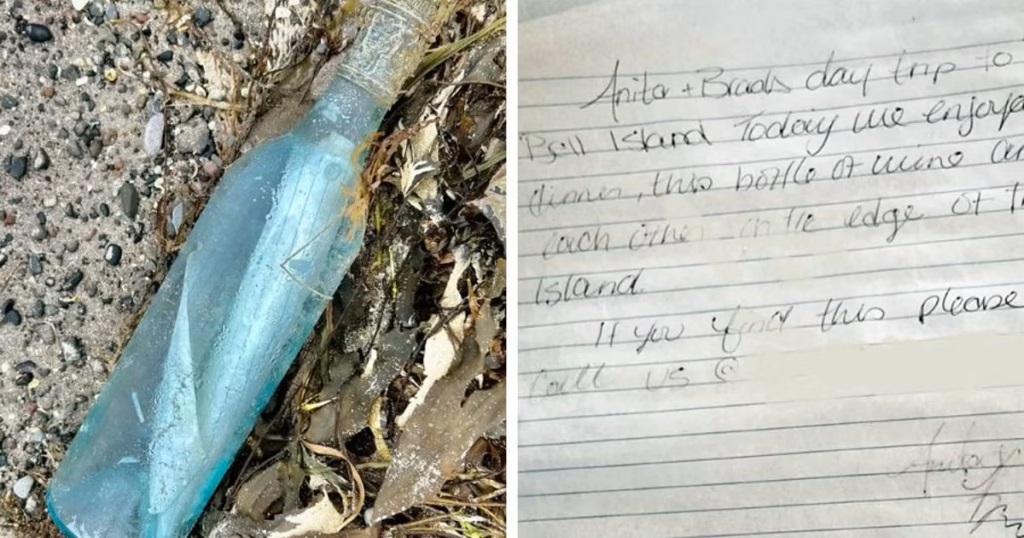 Anita + Brads day trip to
Bell Island Today we enjoye
dinner, this bottle of wine an
each other on the edge of t
Island.
If you find this please
call us @